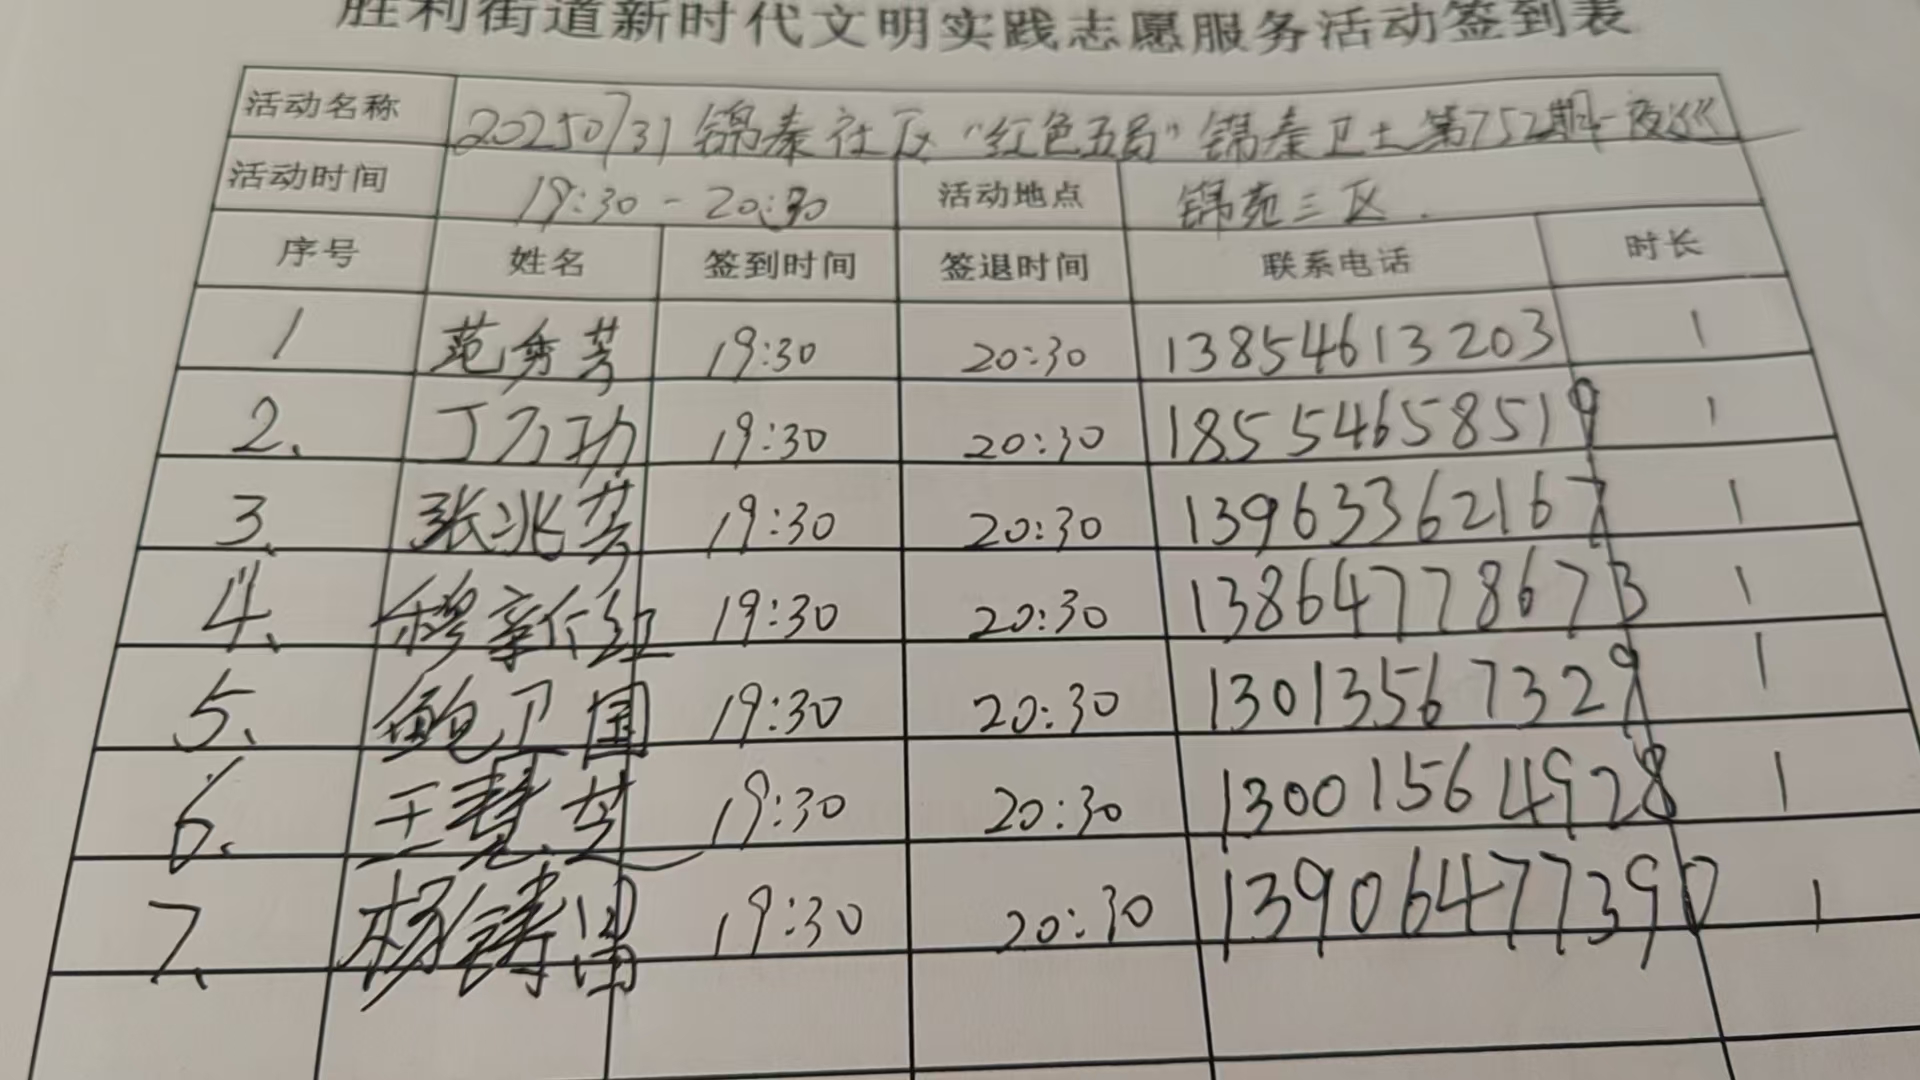 胜利街道新时代文明实践志愿服务活动签到表
活动名称 20250731锦泰社区“红色五号”锦泰卫士第752期-夜巡
活动时间 19:30-20:30 活动地点 锦苑三区.
序号 姓名 签到时间 签退时间 联系电话 时长
1 范秀芳 19:30 20:30 13854613203 1
2、 丁万功 19:30 20:30 18554658519 1
3、 张兆芬 19:30 20:30 13963362167 1
4、 穆新红 19:30 20:30 13864778673 1
5、 鲍卫国 19:30 20:30 13013567329 1
6. 王慧芝 19:30 20:30 13001564928 1
7、 杨铸 19:30 20:30 13906477390 1